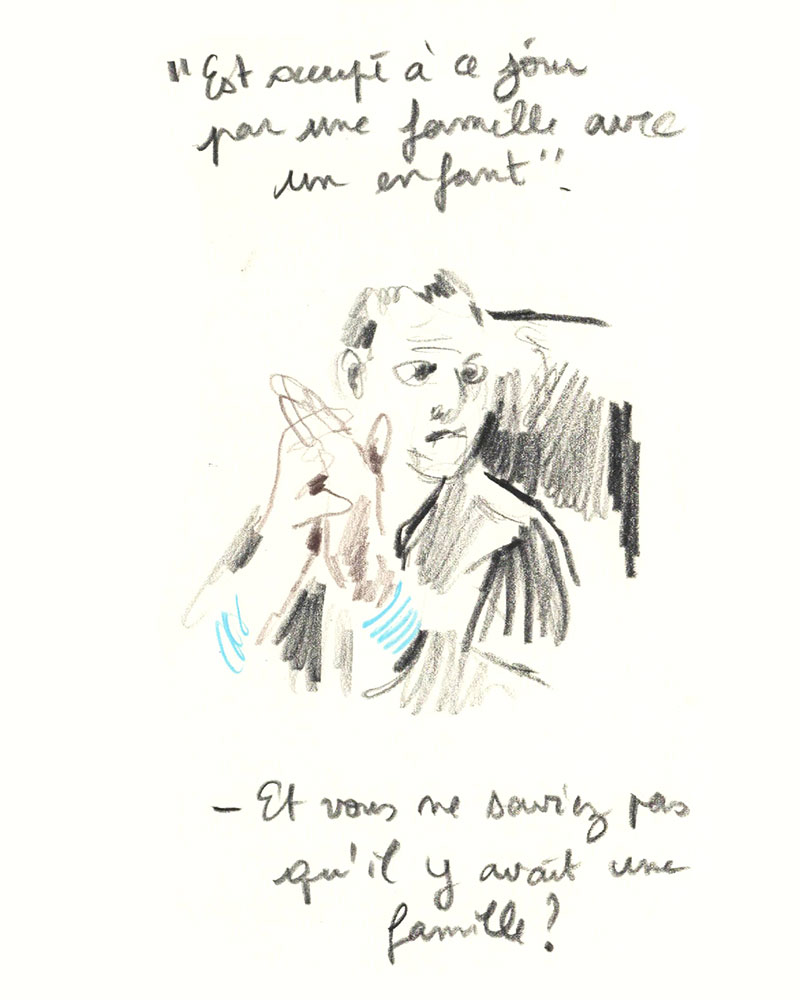 "Est occupé à ce jour
par une famille avec
un enfant".
- Et vous ne saviez pas
qu'il y avait une
famille ?